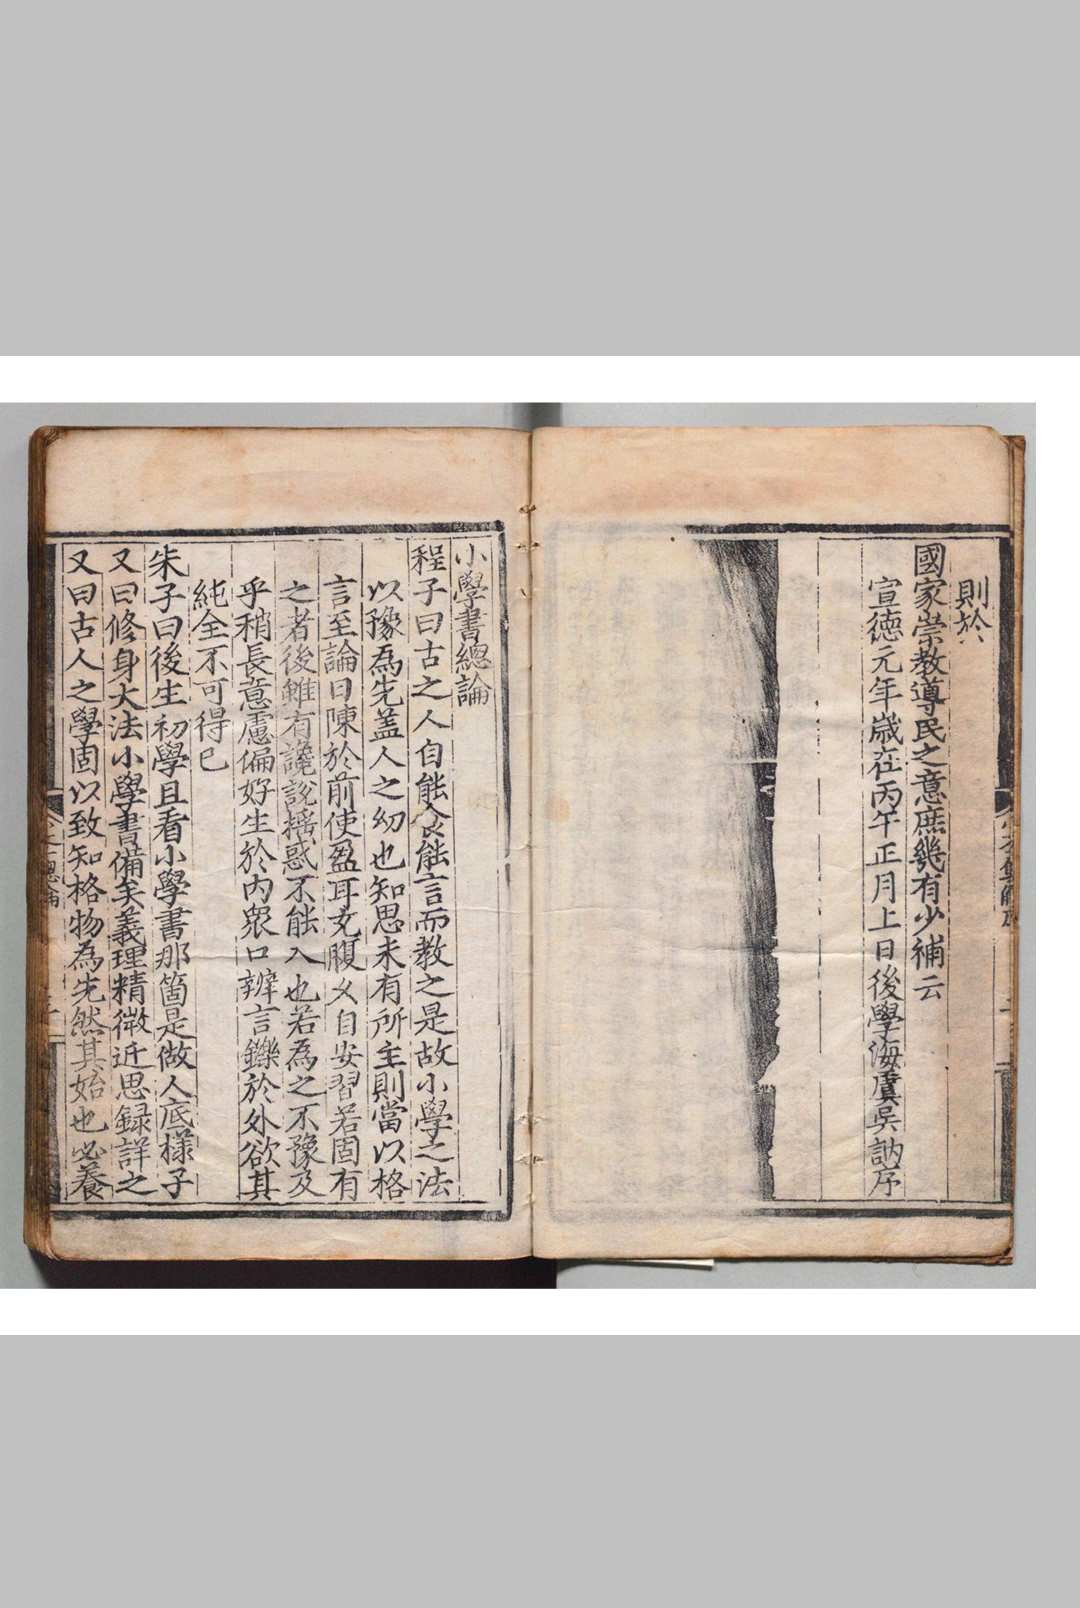 則於
國家崇教導民之意庶幾有少補云
宣德元年歲在丙午正月上日後學海虞吳訥序
小學書總論
程子曰古之人自能食能言而教之是故小學之法
以豫爲先蓋人之幼也知思未有所主則當以格
言至論日陳於前使盈耳充腹久自安習若固有
之者後雖有讒說搖惑不能入也若爲之不豫及
乎稍長意慮偏好生於內衆口辨言鑠於外欲其
純全不可得已
朱子曰後生初學且看小學書那箇是做人底樣子
又曰修身大法小學書備矣義理精微近思録詳之
又曰古人之學固以致知格物為先然其始也必養